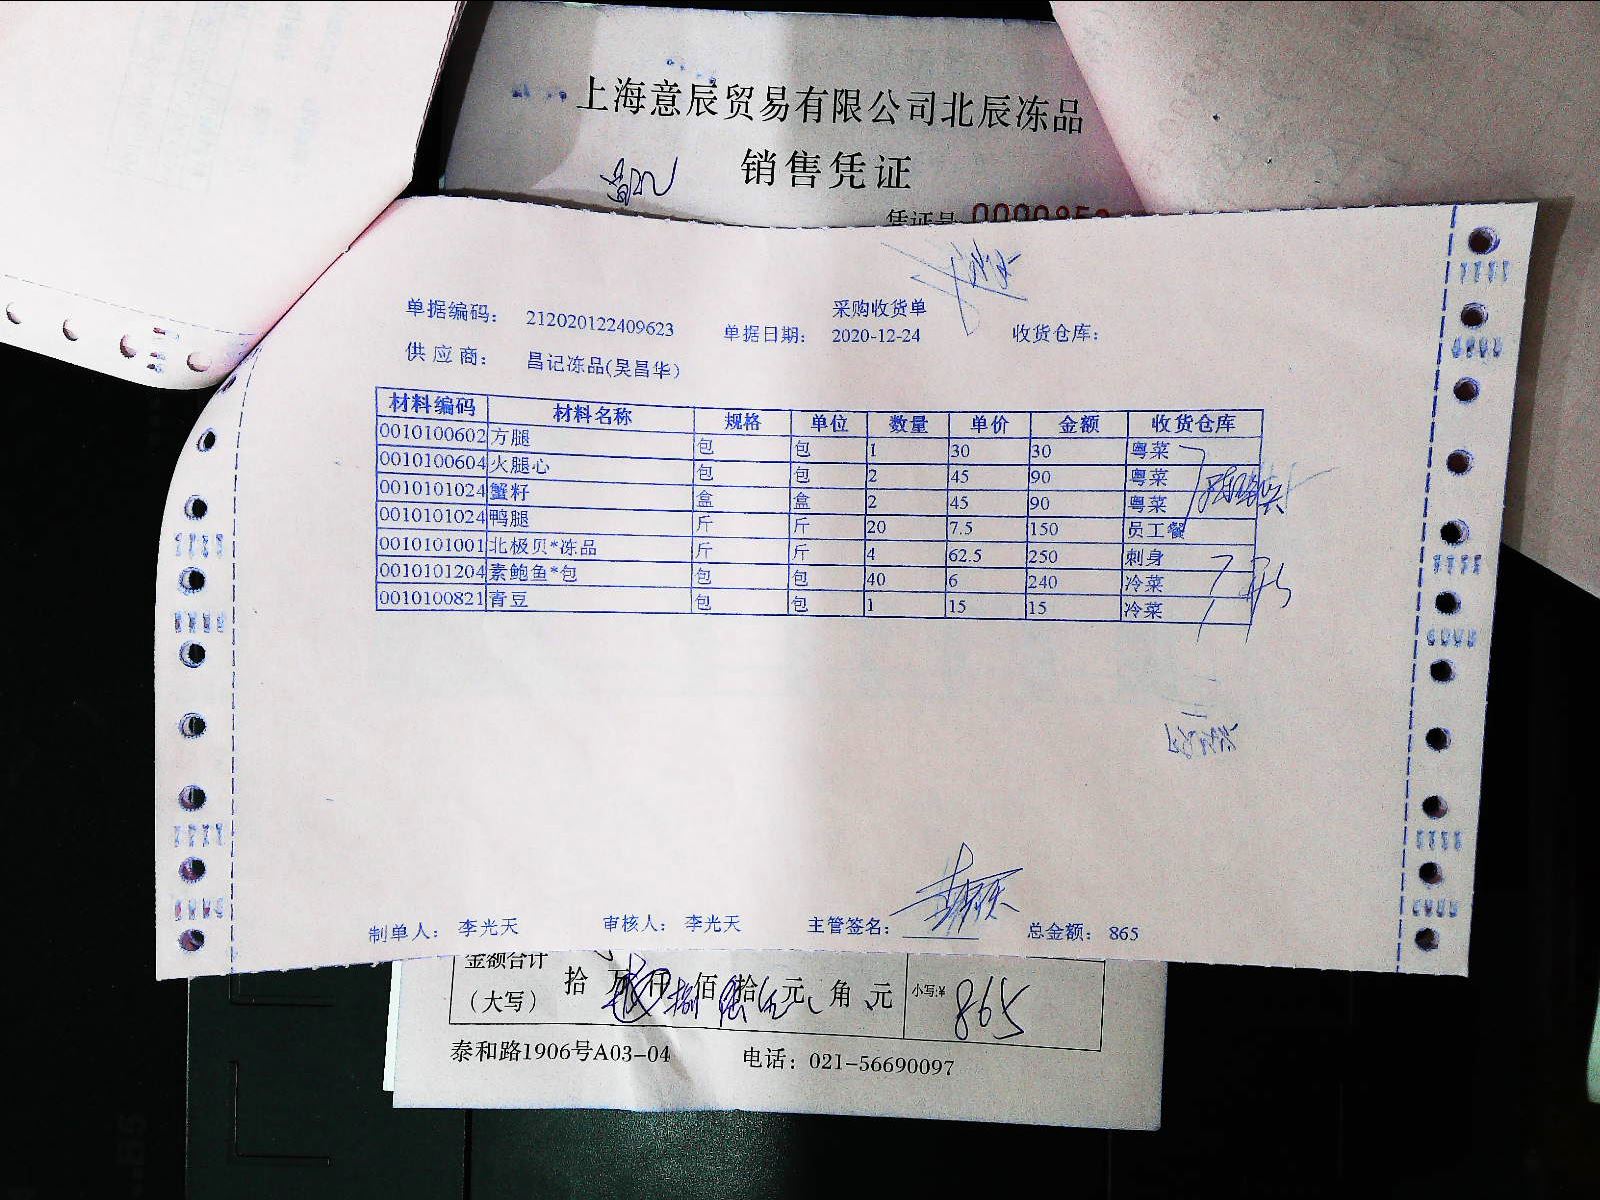 上海意辰贸易有限公司北辰冻品
销售凭证
凭证号
采购收货单
单据编码： 212020122409623 单据日期： 2020-12-24 收货仓库：
供应商： 昌记冻品(吴昌华)
材料编码 材料名称 规格 单位 数量 单价 金额 收货仓库
0010100602 方腿 包 包 1 30 30 粤菜
0010100604 火腿心 包 包 2 45 90 粤菜
0010101024 蟹籽 盒 盒 2 45 90 粤菜
0010101024 鸭腿 斤 斤 20 7.5 150 员工餐
0010101001 北极贝*冻品 斤 斤 4 62.5 250 刺身
0010101204 素鲍鱼*包 包 包 40 6 240 冷菜
0010100821 青豆 包 包 1 15 15 冷菜
制单人： 李光天 审核人： 李光天 主管签名： 总金额： 865
金额合计
（大写） 拾 万 仟 捌 佰 陆 拾 伍 元 角 元 小写:¥ 865
泰和路1906号A03-04 电话：021-56690097